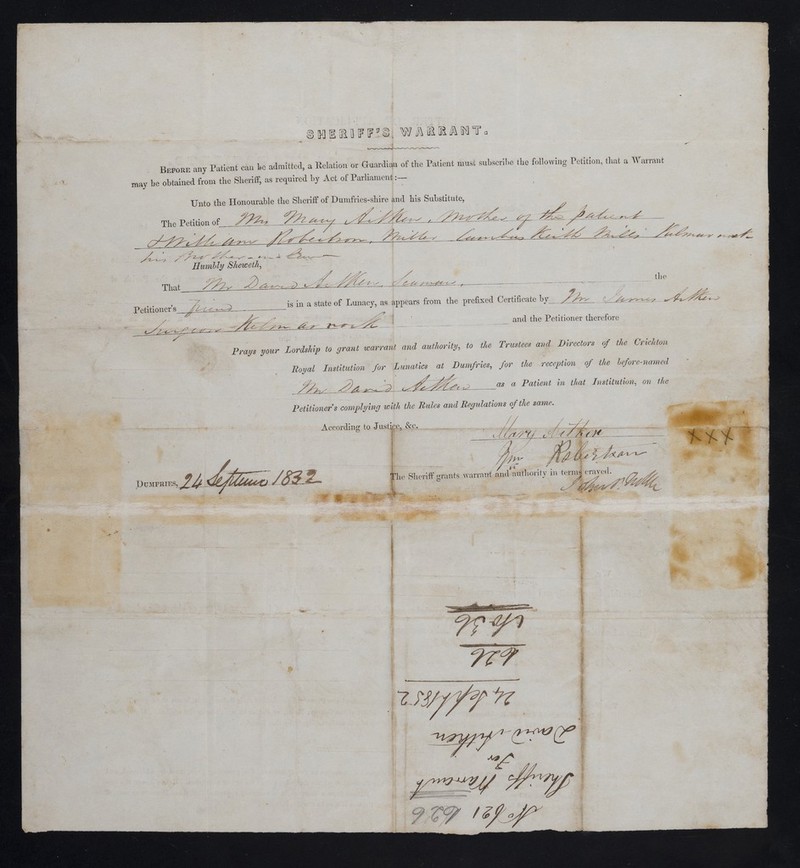 SHERIFF'S WARRANT.
BEFORE any Patient can be admitted, a Relation or Guardian of the Patient must subscribe the following Petition, that a Warrant
may be obtained from the Sheriff, as required by Act of Parliament:—
Unto the Honourable the Sheriff of Dumfries-shire and his Substitute,
The Petition of Mrs Mary Aitken, Mother of the patient
& William Robertson, Miller Keith Mills Kilmarnock
his
Humbly Sheweth,
That Mr David Aitken, Seaman, the
Petitioner's friend is in a state of Lunacy, as appears from the prefixed Certificate by Mr James Aitken
Surgeon Kilmarnock and the Petitioner therefore
Prays your Lordship to grant warrant and authority, to the Trustees and Directors of the Crichton
Royal Institution for Lunatics at Dumfries, for the reception of the before-named
Mr David Aitken as a Patient in that Institution, on the
Petitioner's complying with the Rules and Regulations of the same.
According to Justice, &c.
Mary Aitken
Wm Robertson
XXX
DUMFRIES, 24 September 1852
The Sheriff grants warrant and authority in terms craved.
No 621 626
Sheriffs Warrant
For
David Aitken
24 Sept 1852
626